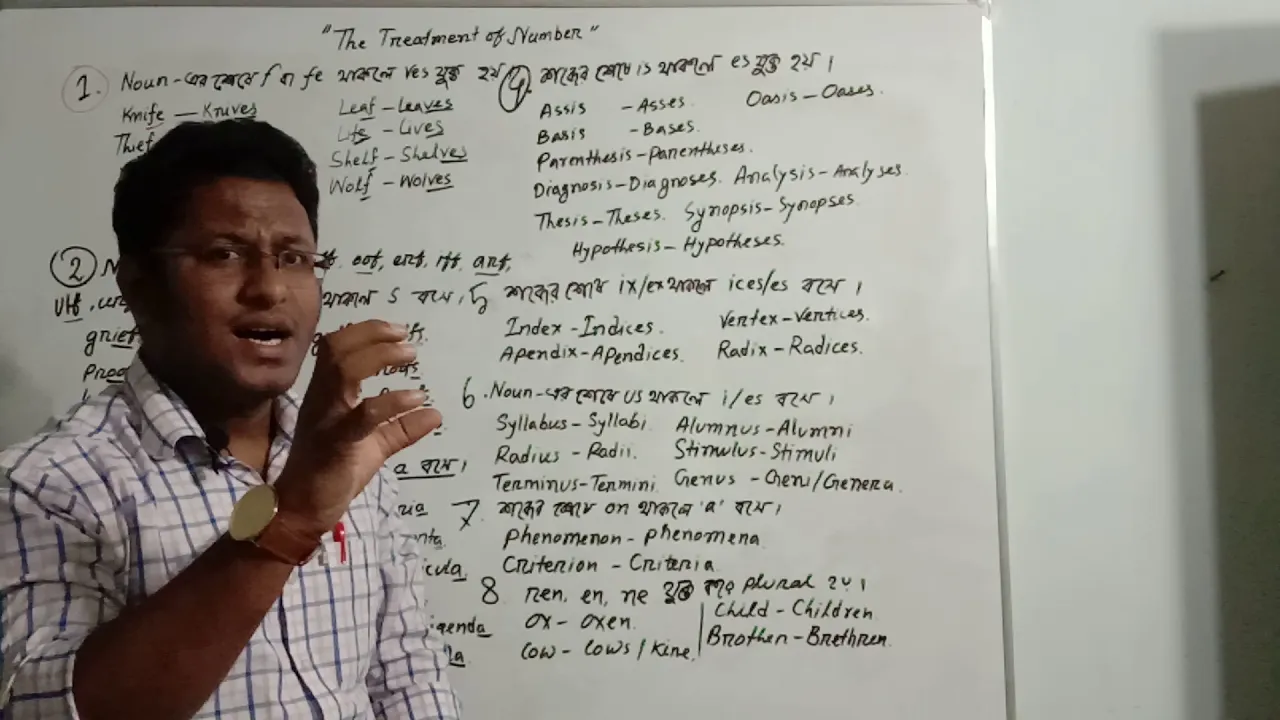 "The Treatment of Number"
1. Noun-এর শেষে f বা fe থাকলে ves যুক্ত হয়
Knife — Knives
Leaf – Leaves
Thief
Life – Lives
Shelf – Shelves
Wolf – Wolves
2
oof, erf, iff, arf,
থাকলে s বসে,
grief
a বসে।
ria
enta
icula
genda
la
4. শব্দের শেষে is থাকলে es যুক্ত হয়।
Assis – Asses.
Oasis – Oases.
Basis – Bases.
Parenthesis – Parentheses.
Diagnosis – Diagnoses. Analysis – Analyses.
Thesis – Theses. Synopsis – Synopses.
Hypothesis – Hypotheses.
5 শব্দের শেষে ix/ex থাকলে ices/es বসে।
Index – Indices. Vertex – Vertices.
Apendix – Apendices. Radix – Radices.
6. Noun-এর শেষে us থাকলে i/es বসে।
Syllabus – Syllabi. Alumnus – Alumni
Radius – Radii. Stimulus – Stimuli
Terminus – Termini. Genus – Geni/Genera.
7. শব্দের শেষে on থাকলে 'a' বসে।
Phenomenon – Phenomena.
Criterion – Criteria.
8. ren, en, ne যুক্ত করে plural হয়।
Ox – Oxen. Child – Children
Cow – Cows/Kine. Brother – Brethren.